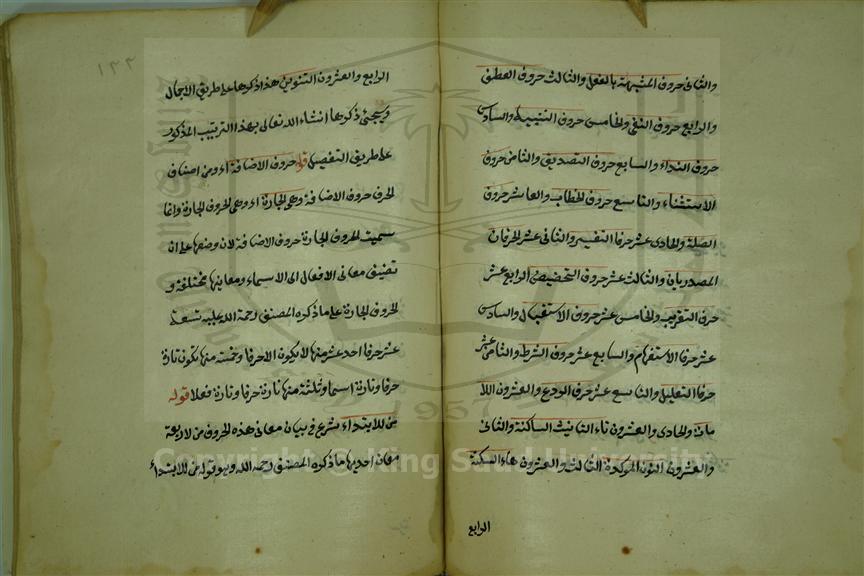 والثانى حروف المشبهة بالفعل والثالث حروف العطف
والرابع حروف النفى والخامس حروف التنبيه والسادس
حروف النداء والسابع حروف التصديق والثامن حروف
الاستثناء والتاسع حروف الخطاب والعاشر حروف
الصلة والحادى عشر حرفا التفسير والثانى عشر الحرفان
المصدريان والثالث عشر حروف التحضيض الرابع عشر
حرف التقريب والخامس عشر حروف الاستقبال والسادس
عشر حرفا الاستفهام والسابع عشر حروف الشرط والثامن عشر
حرفا التعليل والتاسع عشر حرف الردع والعشرون اللا
مات والحادى والعشرون تاء التانيث الساكنة والثانى
والعشرون النون الموكدة الثالث والعشرون هاء السكتة
الرابع
١٢٢
الرابع والعشرون التنوين هذا ذكرها على طريق الاجمال
ويجئ ذكرها انشاء الله تعالى بهذا الترتيب المذكور
على طريق التفصيل قوله حروف الاضافة اه ومن اصناف
الحرف حروف الاضافة وهى الجارة اه وهى الحروف الجارة وانما
سميت الحروف الجارة حروف الاضافة لان وضعها على ان
تضيف معانى الافعال الى الاسماء ومعانيها مختلفة و
الحروف الجارة على ما ذكره المصنف رحمة الله عليه تسعة
عشر حرفا احد عشر منها لا يكون الا حرفا وخمسة منها تكون تارة
حرفا وتارة اسما وثلثة منها تارة حرفا وتارة فعلا قوله
من للابتداء شرع فى بيان معانى هذه الحروف من لاربعة
معان احديها ما ذكره المصنف رحمه الله وهو قوله من للابتداء
Copyright © King Saud University
1957